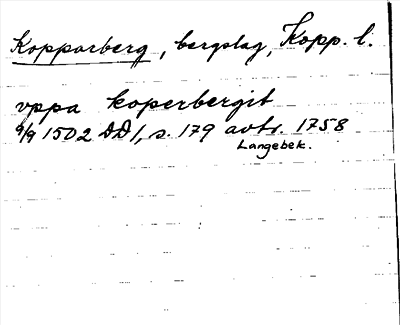 Kopparberg, bergslag, Kopp. l.
vppa koperbergit
9/9 1502 DD1, s. 179 avtr. 1758
Langebek.